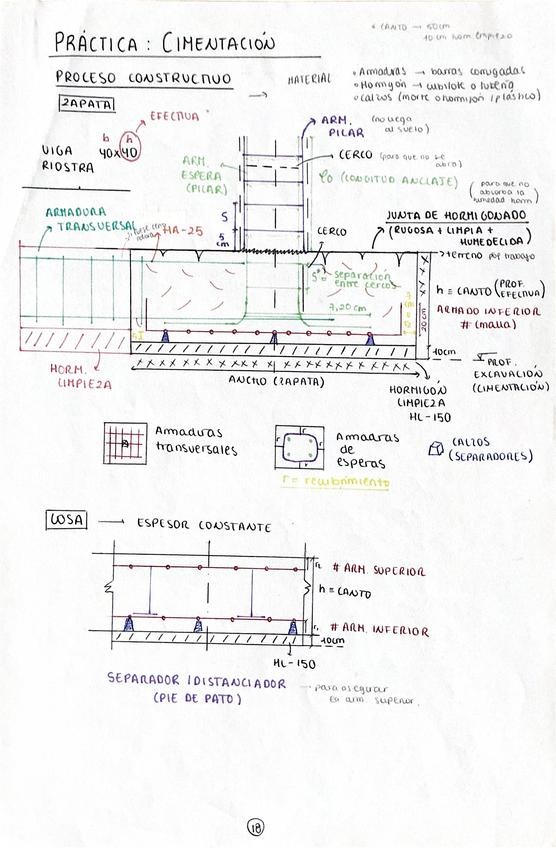 * CANTO → 50cm
10 cm horm limpieza
PRÁCTICA : CIMENTACIÓN
PROCESO CONSTRUCTIVO
→ MATERIAL
• Armaduras → barras corrugadas
• Hormigón → cubilote o tubería
• Calzos (mortero o hormigón / plástico)
ZAPATA
EFECTIVA
b h
40x40
VIGA
RIOSTRA
ARM.
PILAR
(no llega
al suelo)
ARM.
ESPERA
(PILAR)
CERCO (para que no se
abra)
lo (LONGITUD ANCLAJE)
(para que no
absorba la
humedad horm)
S
5
cm
ARMADURA
TRANSVERSAL
HA-25
CERCO
JUNTA DE HORMIGONADO
(RUGOSA + LIMPIA +
HUMEDECIDA)
→ terreno por trabajo
S = separación
entre cercos
7,20 cm
20cm
h = CANTO (PROF.
EFECTIVA)
ARMADO INFERIOR
# (malla)
10cm
PROF.
EXCAVACIÓN
(CIMENTACIÓN)
HORM.
LIMPIEZA
ANCHO (ZAPATA)
HORMIGÓN
LIMPIEZA
HL-150
Armaduras
transversales
r
r
r
r
Armaduras
de
esperas
r = recubrimiento
CALZOS
(SEPARADORES)
LOSA → ESPESOR CONSTANTE
# ARM. SUPERIOR
h = CANTO
# ARM. INFERIOR
10cm
HL-150
SEPARADOR / DISTANCIADOR
(PIE DE PATO)
→ para asegurar
la arm superior.
18